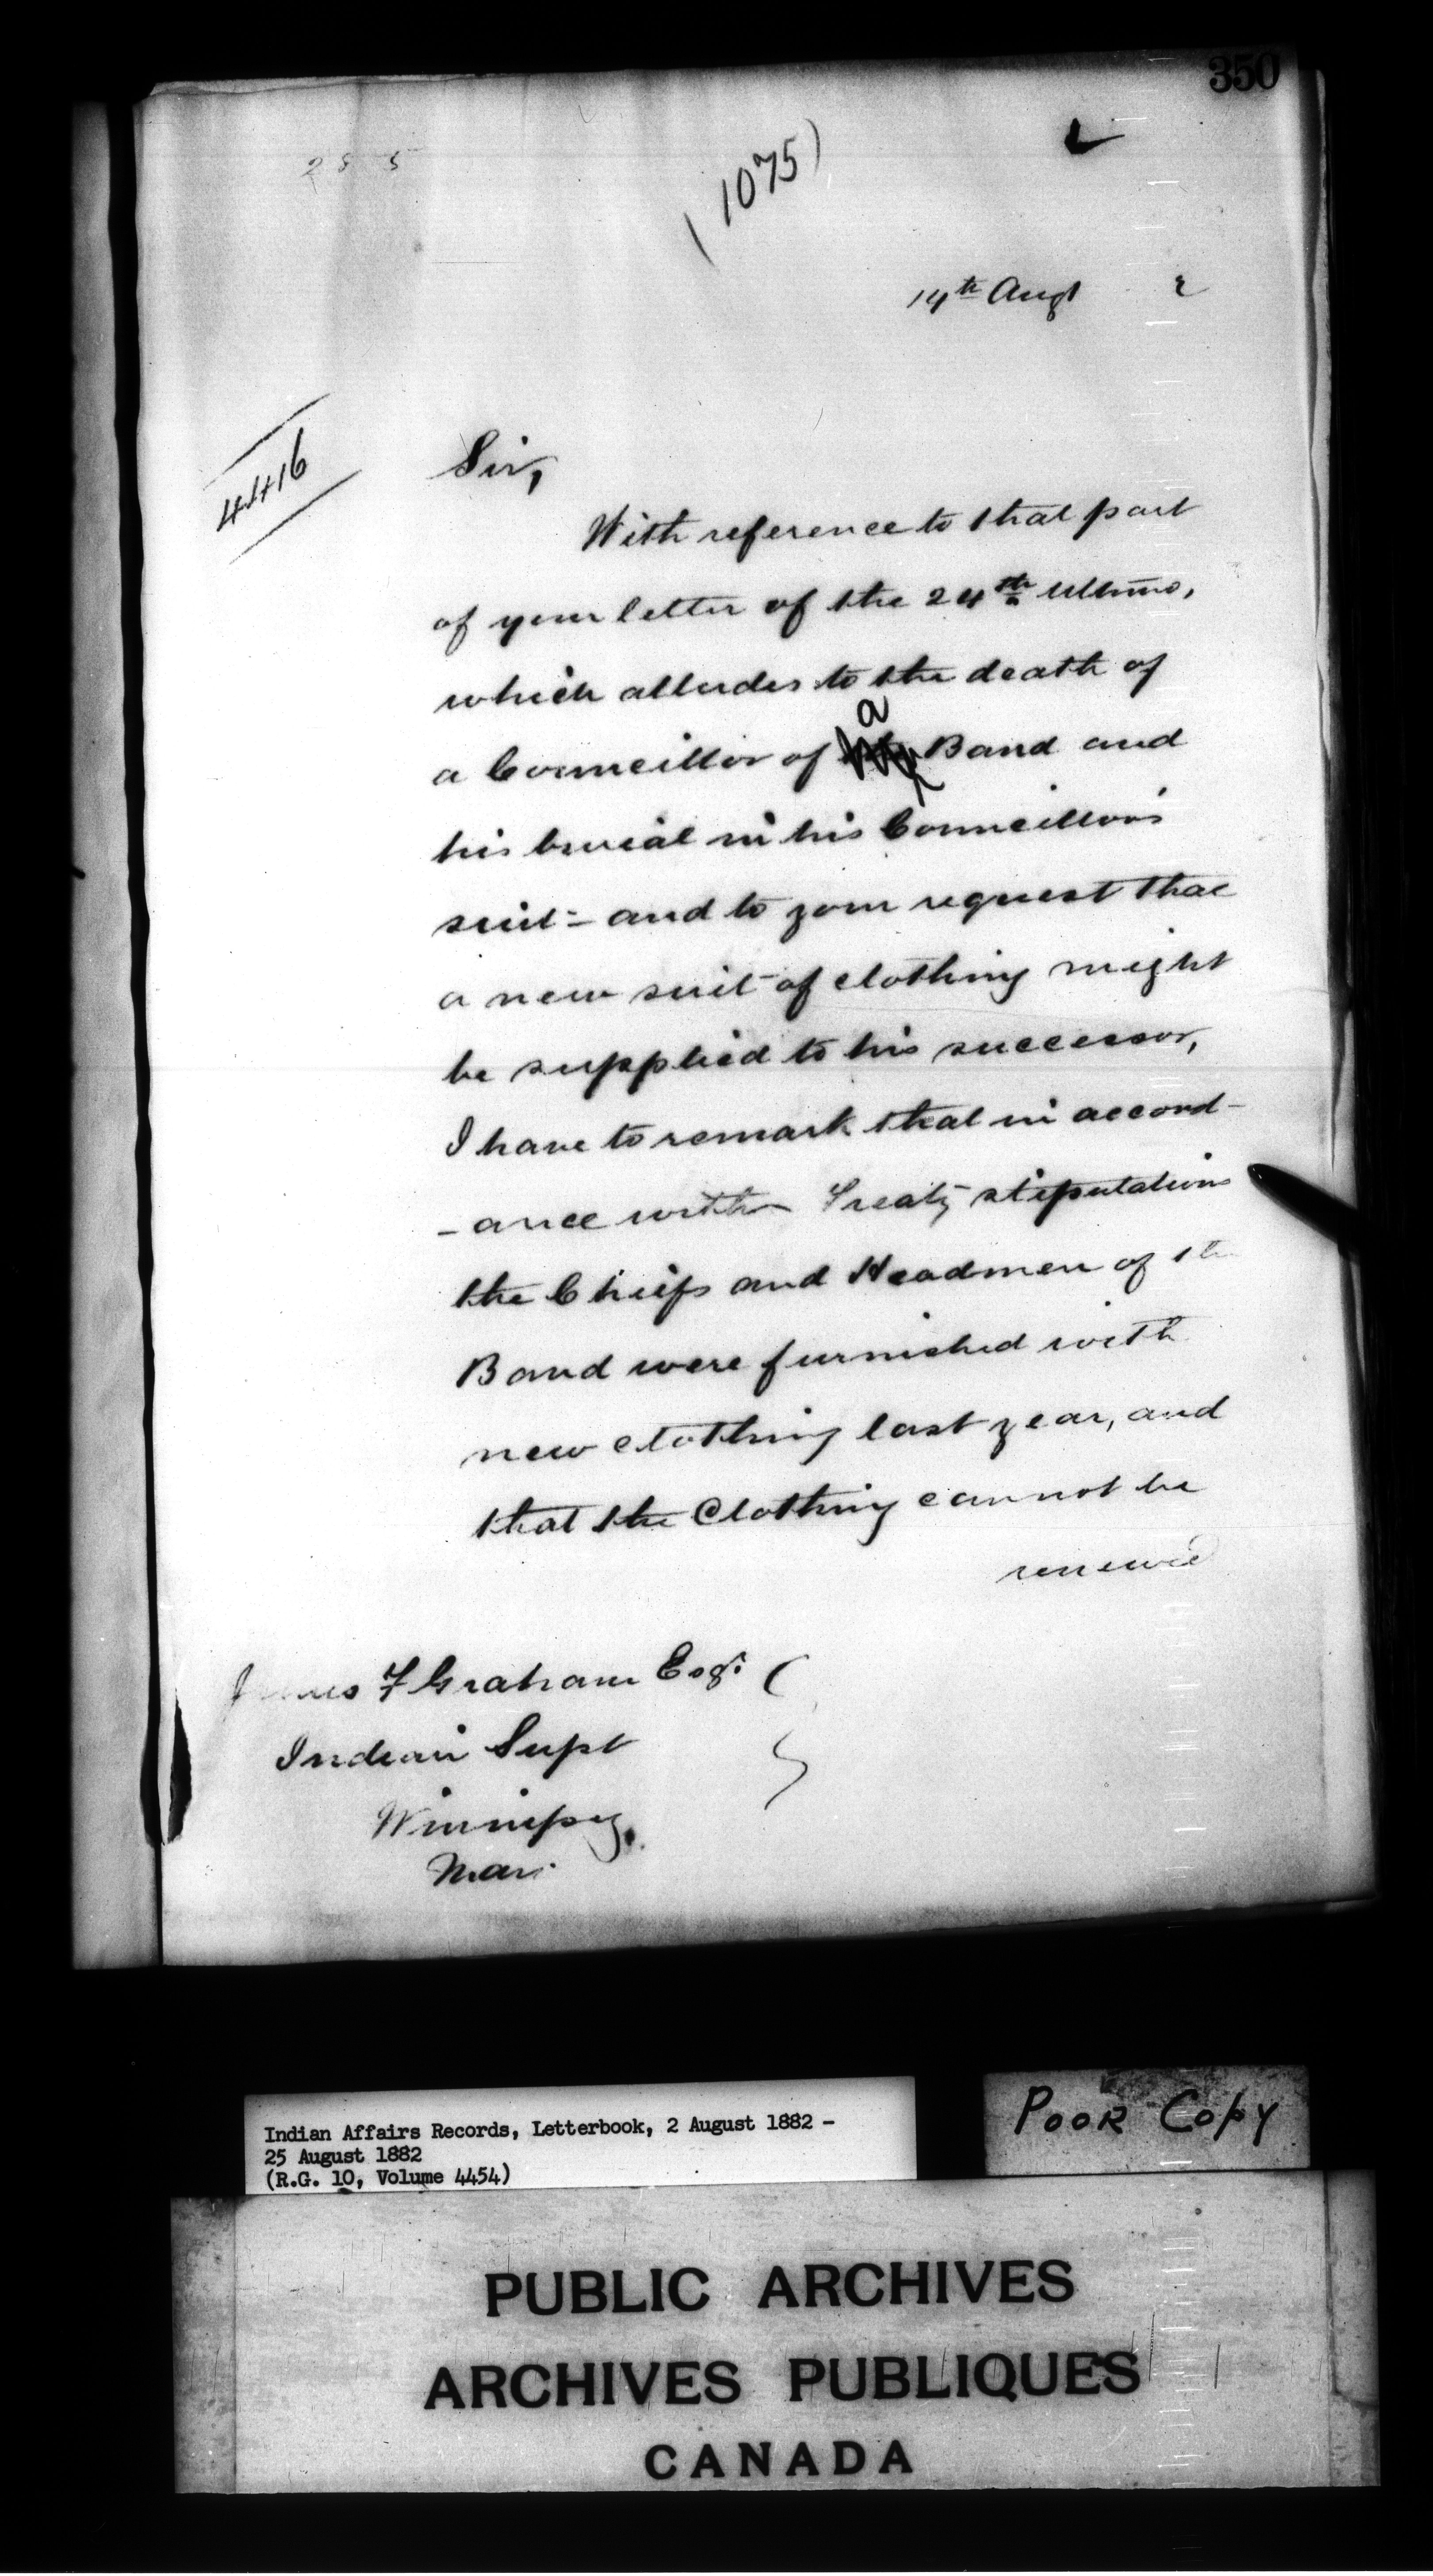 350
(1075)
14th Augt 2
4416
Sir,
With reference to that part
of your letter of the 24th ultimo,
which alludes to the death of
a
a Councillor of Band and
his burial in his Councillor's
suit - and to your request that
a new suit of clothing might
be supplied to his successor,
I have to remark that in accord-
-ance with Treaty stipulations
the Chiefs and Headmen of the
Band were furnished with
new clothing last year, and
that the Clothing cannot be
renewed
James F Graham Esqr.
Indian Supt
Winnipeg,
Man.
Indian Affairs Records, Letterbook, 2 August 1882 -
25 August 1882
(R.G. 10, Volume 4454)
POOR COPY
PUBLIC ARCHIVES
ARCHIVES PUBLIQUES
CANADA